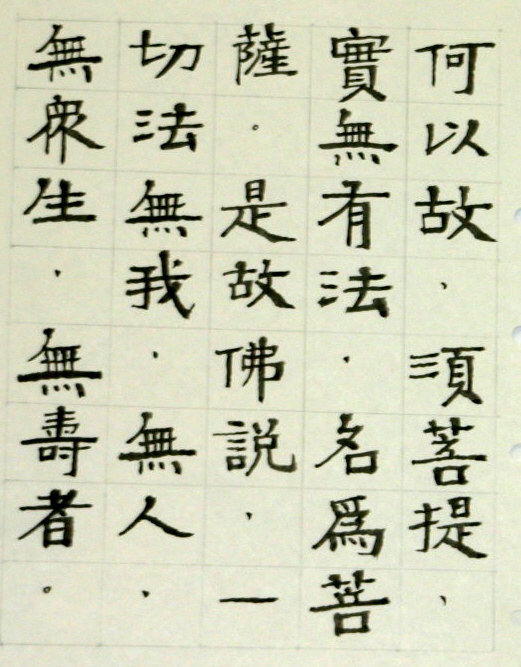 何以故、須菩提、
實無有法、名爲菩
薩。是故佛説、一
切法無我、無人、
無衆生、無壽者。